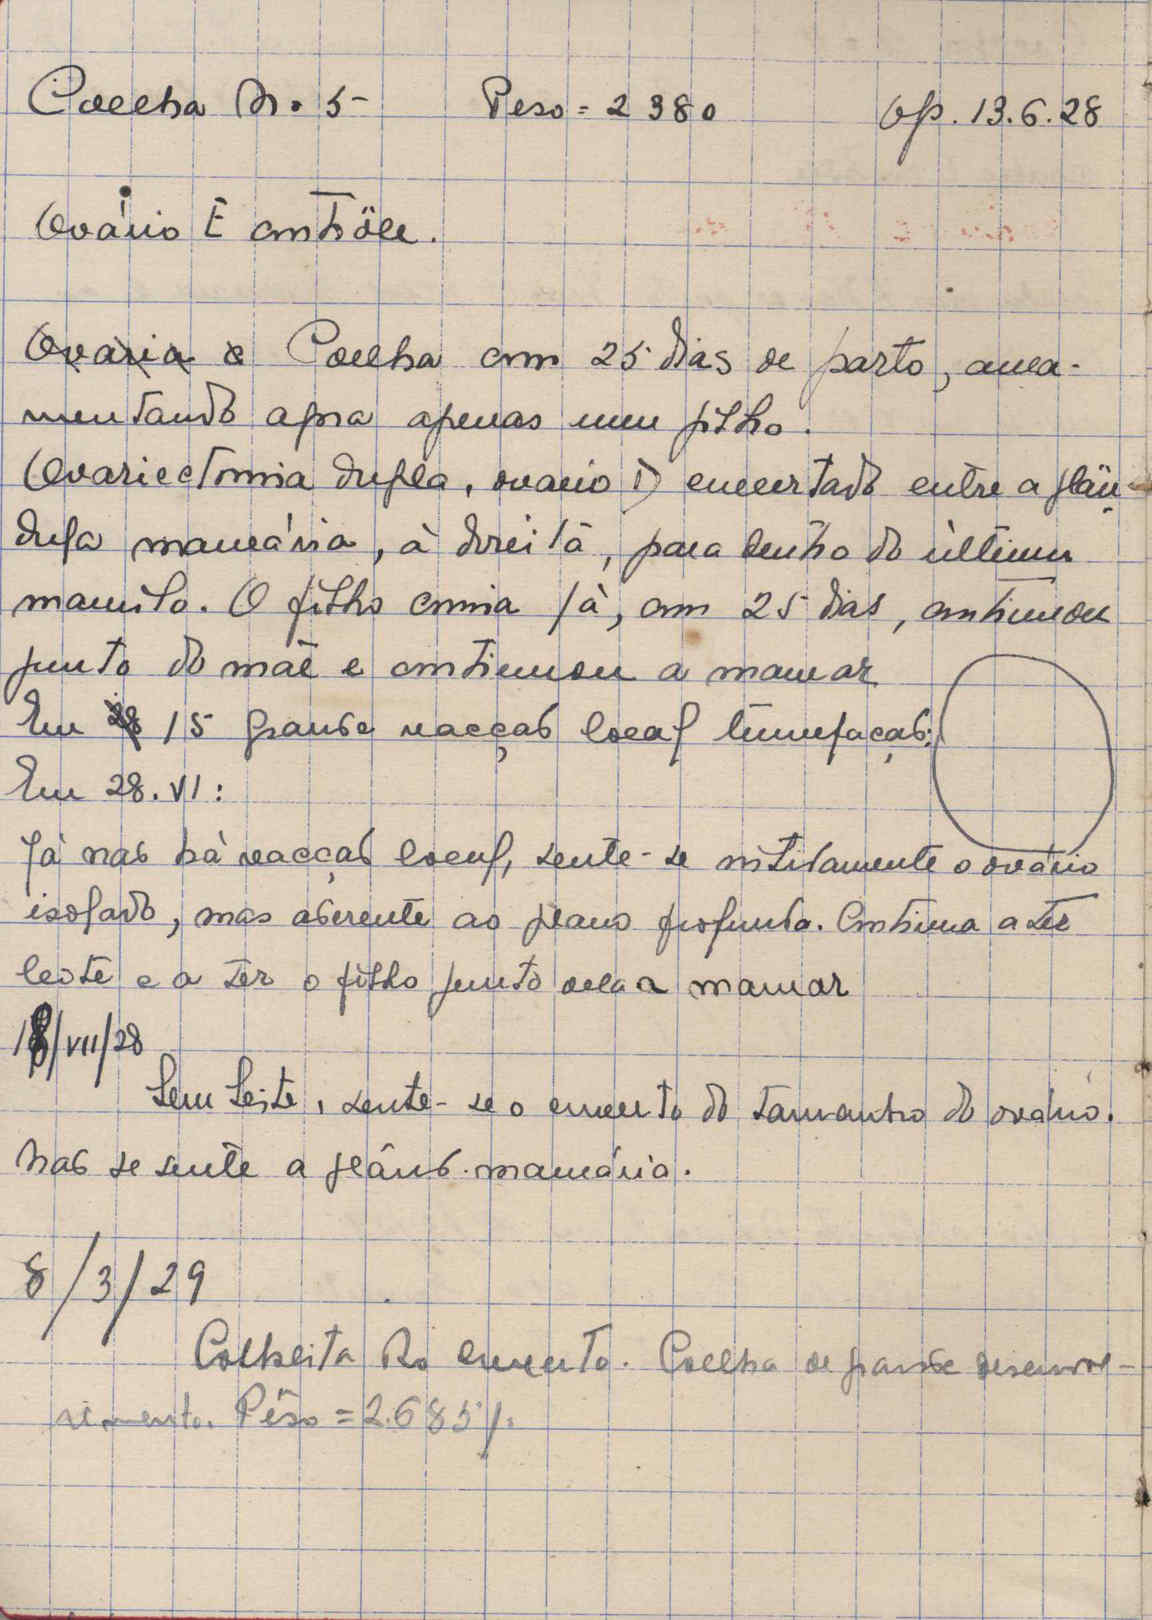 Coelha N. 5- Peso = 2380 Op. 13.6.28
Ovário E contrôle.
Ovaria e Coelha com 25 dias de parto, ama-
mentando agora apenas um filho.
Ovariectomia dupla, ovario D enxertado entre a glân-
dula mamária, à direita, para dentro do último
mamilo. O filho comia já, com 25 dias, continuou
junto do mãe e continuou a mamar
Em 28 15 grande reacção local tumefação.
Em 28.VI:
Já não há reacção local, sente-se nitidamente o ovário
isolado, mas aderente ao plano profundo. Continua a ter
leite e a ter o filho junto dela a mamar
18/VII/28
Sem leite, sente-se o enxerto do tamanho do ovário.
Não se sente a glând. mamária.
8/3/29
Colheita do enxerto. Coelha de grande desenvol-
vimento. Pêso = 2.685 g.